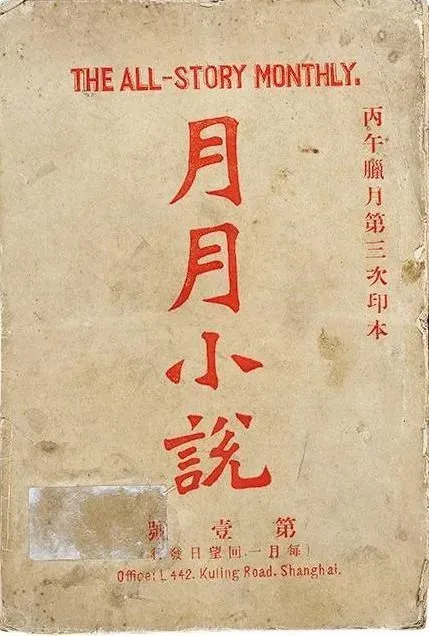 THE ALL-STORY MONTHLY.
丙午臘月第三次印本
月月小說
第壹號
(每月一回望日發行)
Office: L 442. Kuling Road. Shanghai.